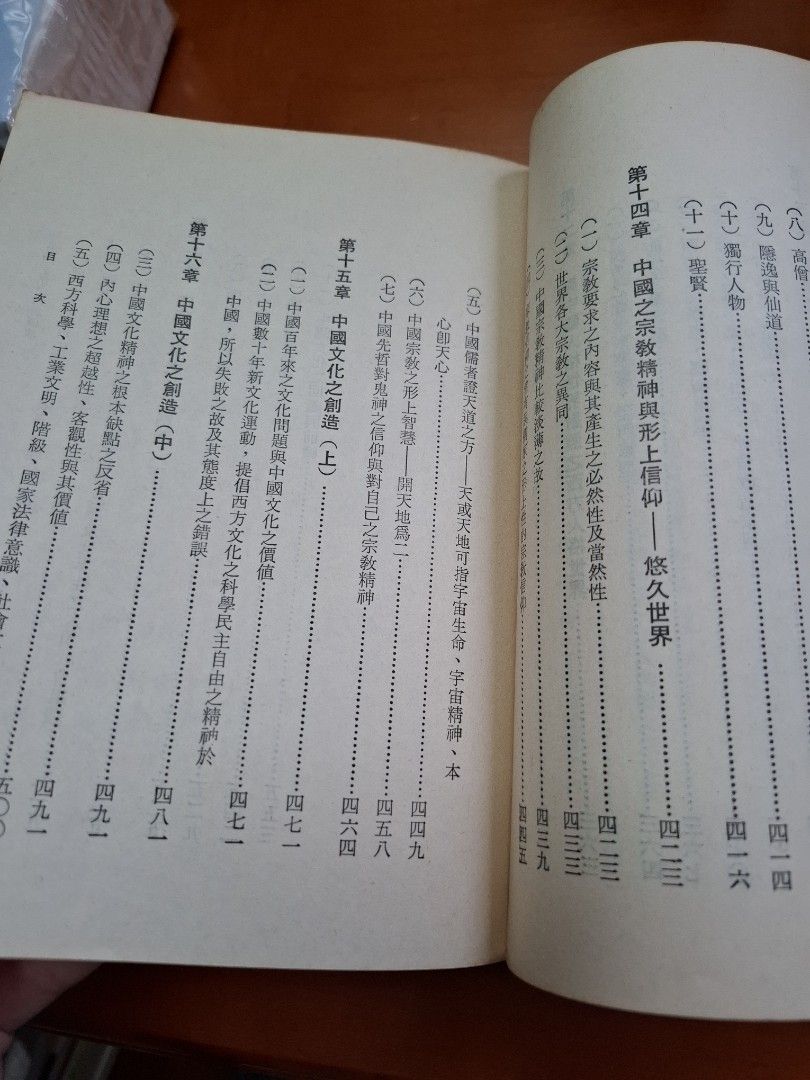 （八）高僧
（九）隱逸與仙道
（十）獨行人物……四一四
（十一）聖賢……四一六
第十四章　中國之宗教精神與形上信仰——悠久世界……四二三
（一）宗教要求之內容與其產生之必然性及當然性……四二三
（二）世界各大宗教之異同……四三三
（三）中國宗教精神比較淡薄之故……四三九
四四五
（五）中國儒者證天道之方——天或天地可指宇宙生命、宇宙精神、本
心卽天心……四四九
（六）中國宗教之形上智慧——開天地爲二……四五八
（七）中國先哲對鬼神之信仰與對自己之宗教精神……四六四
第十五章　中國文化之創造（上）……四七一
（一）中國百年來之文化問題與中國文化之價值……四七一
（二）中國數十年新文化運動，提倡西方文化之科學民主自由之精神於
中國，所以失敗之故及其態度上之錯誤……四八一
第十六章　中國文化之創造（中）……四九一
（三）中國文化精神之根本缺點之反省……四九一
（四）內心理想之超越性、客觀性與其價値……五〇〇
（五）西方科學、工業文明、階級、國家法律意識、社會
目　次